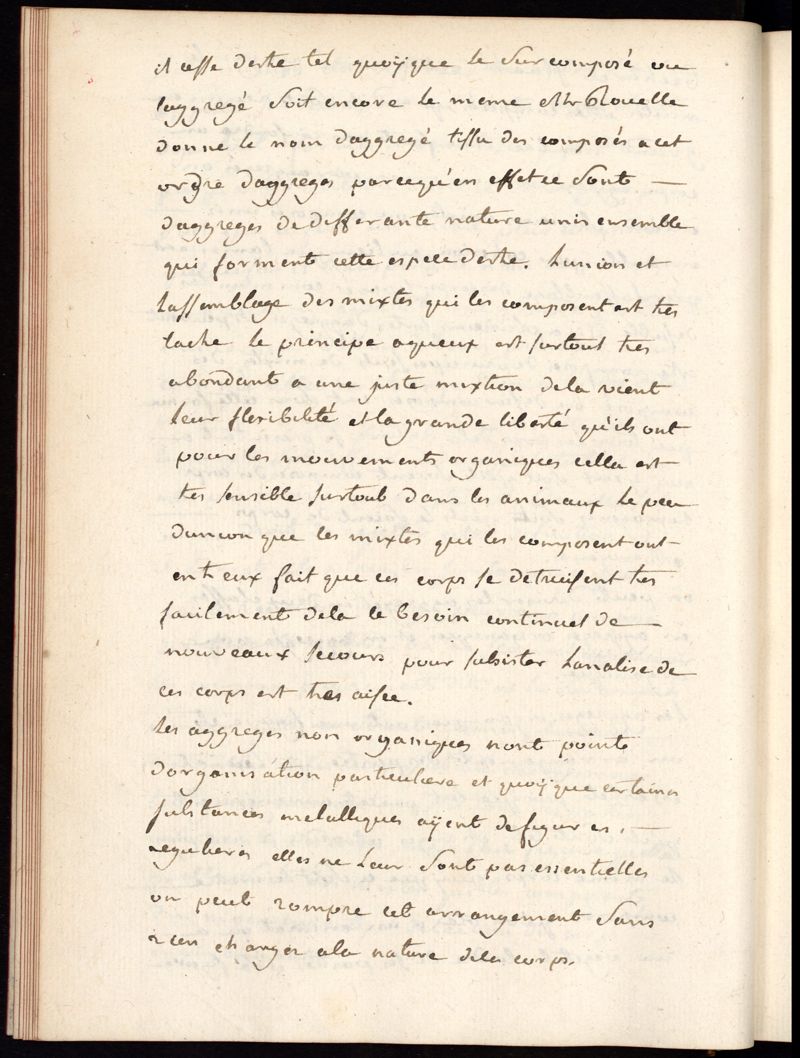 il cesse destre tel quoÿque le surcomposé ou
laggregé soit encore le meme Mr Rouelle
donne le nom daggregé tissu des composés a cet
ordre daggreges parcequ'en effet ce sont —
daggreges de differante nature unis ensemble
qui forment cette espece destre. Lunion et
lassemblage des mixtes qui les composent est tres
lache le principe aqueux est surtout tres
abondant a une juste mixtion dela vient
leur flexibilité et la grande liberté qu'ils ont
pour les mouvements organiques cella est
tres sensible surtout dans les animaux le peu
dunion que les mixtes qui les composent ont
entr eux fait que ces corps se detruisent tres
facilement dela le besoin continuel de —
nouveaux secours pour subsister Lanalise de
ces corps est tres aisée.
Les aggreges non organiques nont point
dorganisation particuliere et quoÿque certaines
substances metalliques aÿent des figures, —
regulieres elles ne leur sont pas essentielles
on peut rompre cet arrangement sans
rien changer a la nature dela corps.